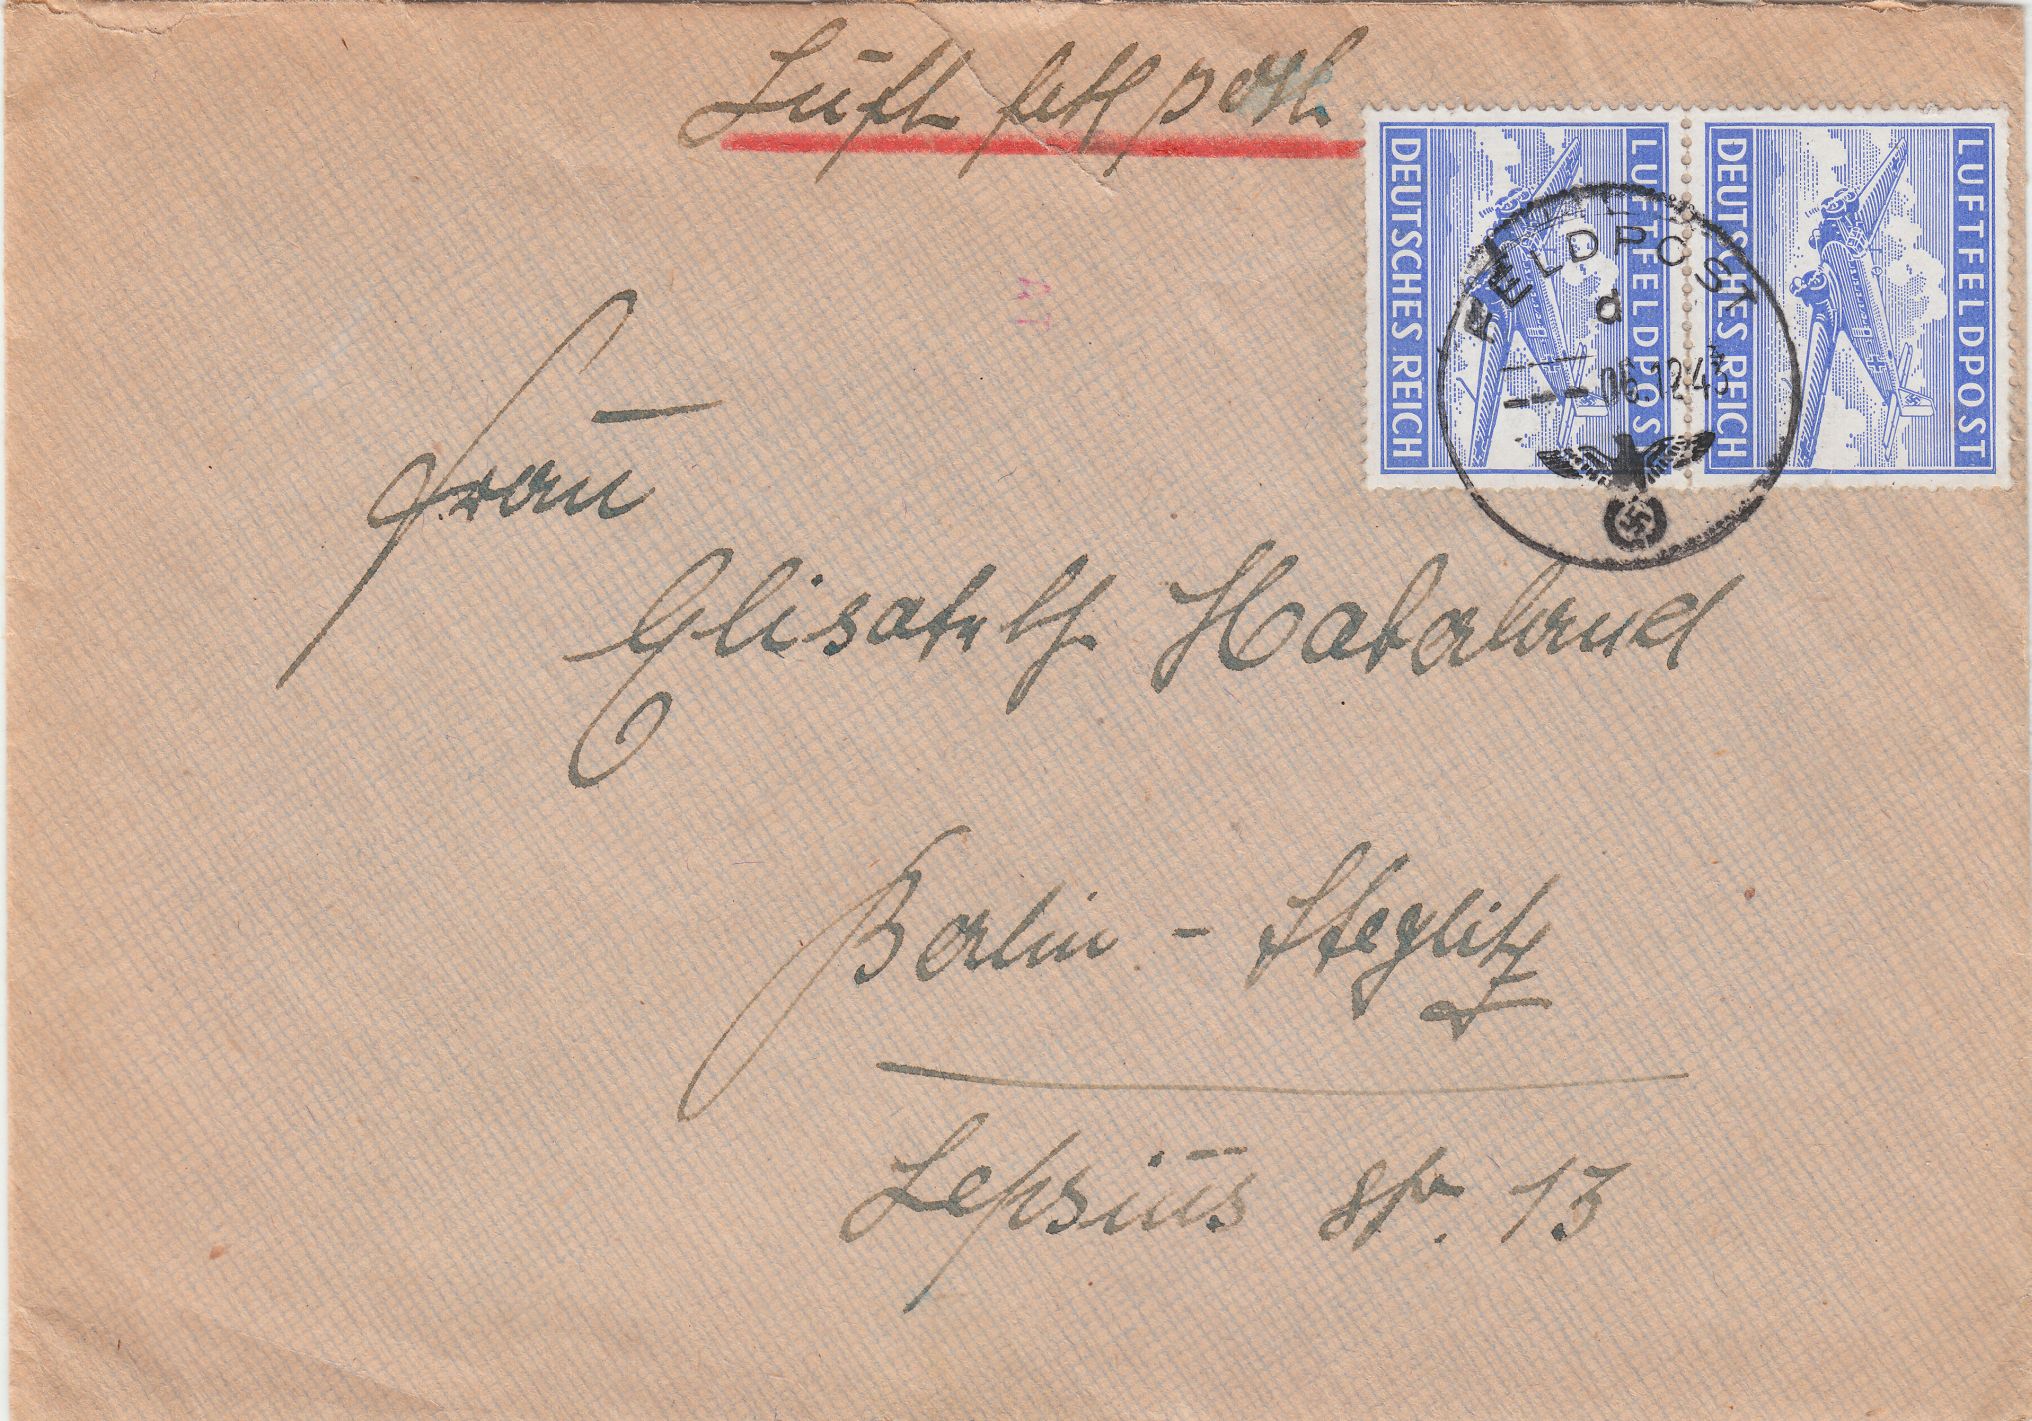 Luftfeldpost
DEUTSCHES REICH
LUFTFELDPOST
DEUTSCHES REICH
LUFTFELDPOST
FELDPOST
d
06.12.43
Frau
Elisabeth Haberland
Berlin - Steglitz
Lepsius str. 13